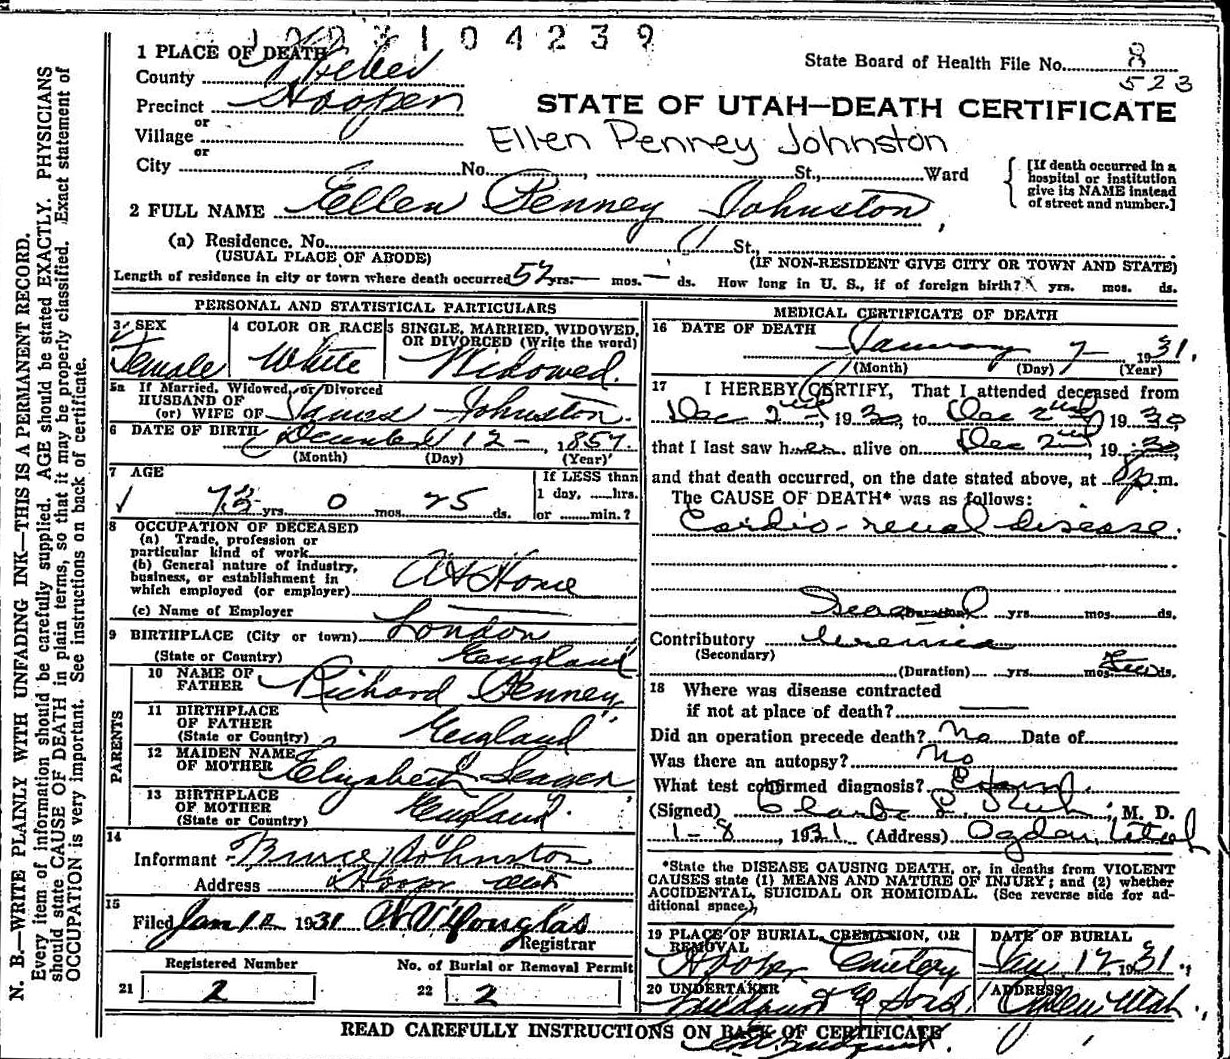 1931104239
1 PLACE OF DEATH
State Board of Health File No. 8
County Weber
523
Precinct Hooper
STATE OF UTAH—DEATH CERTIFICATE
or
Village
Ellen Penney Johnston
or
City No. , St., Ward
[If death occurred in a hospital or institution give its NAME instead of street and number.]
2 FULL NAME Ellen Penney Johnston,
(a) Residence. No. St.,
(USUAL PLACE OF ABODE) (IF NON-RESIDENT GIVE CITY OR TOWN AND STATE)
Length of residence in city or town where death occurred 52 yrs. — mos. — ds. How long in U. S., if of foreign birth? yrs. mos. ds.
PERSONAL AND STATISTICAL PARTICULARS
3 SEX
Female
4 COLOR OR RACE
White
5 SINGLE, MARRIED, WIDOWED,
OR DIVORCED (Write the word)
Widowed.
5a If Married, Widowed, or Divorced
HUSBAND OF
(or) WIFE OF James Johnston.
6 DATE OF BIRTH December 12 — , 1857.
(Month) (Day) (Year)
7 AGE
73 yrs. 0 mos. 25 ds.
If LESS than
1 day, hrs.
or min.?
8 OCCUPATION OF DECEASED
(a) Trade, profession or
particular kind of work
(b) General nature of industry,
business, or establishment in
which employed (or employer)
At Home
(c) Name of Employer
9 BIRTHPLACE (City or town) London
(State or Country) England
PARENTS
10 NAME OF
FATHER Richard Penney
11 BIRTHPLACE
OF FATHER
(State or Country) England
12 MAIDEN NAME
OF MOTHER Elizabeth Seager
13 BIRTHPLACE
OF MOTHER
(State or Country) England.
14
Informant Bruce Johnston
Address Hooper Utah
15
Filed Jan 12 1931
Douglas
Registrar
Registered Number
21 2
No. of Burial or Removal Permit
22 2
MEDICAL CERTIFICATE OF DEATH
16 DATE OF DEATH
January 7 — 1931.
(Month) (Day) (Year)
17 I HEREBY CERTIFY, That I attended deceased from
Dec 2nd, 1930, to Dec 2nd, 1930
that I last saw her alive on Dec 2nd, 1930,
and that death occurred, on the date stated above, at 8 p.m.
The CAUSE OF DEATH* was as follows:
Cardio-renal disease.
Several yrs. mos. ds.
Contributory Uremia
(Secondary)
(Duration) yrs. mos. Few ds.
18 Where was disease contracted
if not at place of death? —
Did an operation precede death? No Date of
Was there an autopsy? No
What test confirmed diagnosis?
(Signed) , M. D.
1-8, 1931 (Address) Ogden, Utah
*State the DISEASE CAUSING DEATH, or, in deaths from VIOLENT
CAUSES state (1) MEANS AND NATURE OF INJURY; and (2) whether
ACCIDENTAL, SUICIDAL OR HOMICIDAL. (See reverse side for ad-
ditional space.)
19 PLACE OF BURIAL, CREMATION, OR
REMOVAL
Hooper Cemetery
DATE OF BURIAL
Jan 12, 1931.
20 UNDERTAKER
& Sons
ADDRESS
Ogden Utah.
READ CAREFULLY INSTRUCTIONS ON BACK OF CERTIFICATE
N. B.—WRITE PLAINLY WITH UNFADING INK—THIS IS A PERMANENT RECORD.
Every item of information should be carefully supplied. AGE should be stated EXACTLY. PHYSICIANS
should state CAUSE OF DEATH in plain terms, so that it may be properly classified. Exact statement of
OCCUPATION is very important. See instructions on back of certificate.